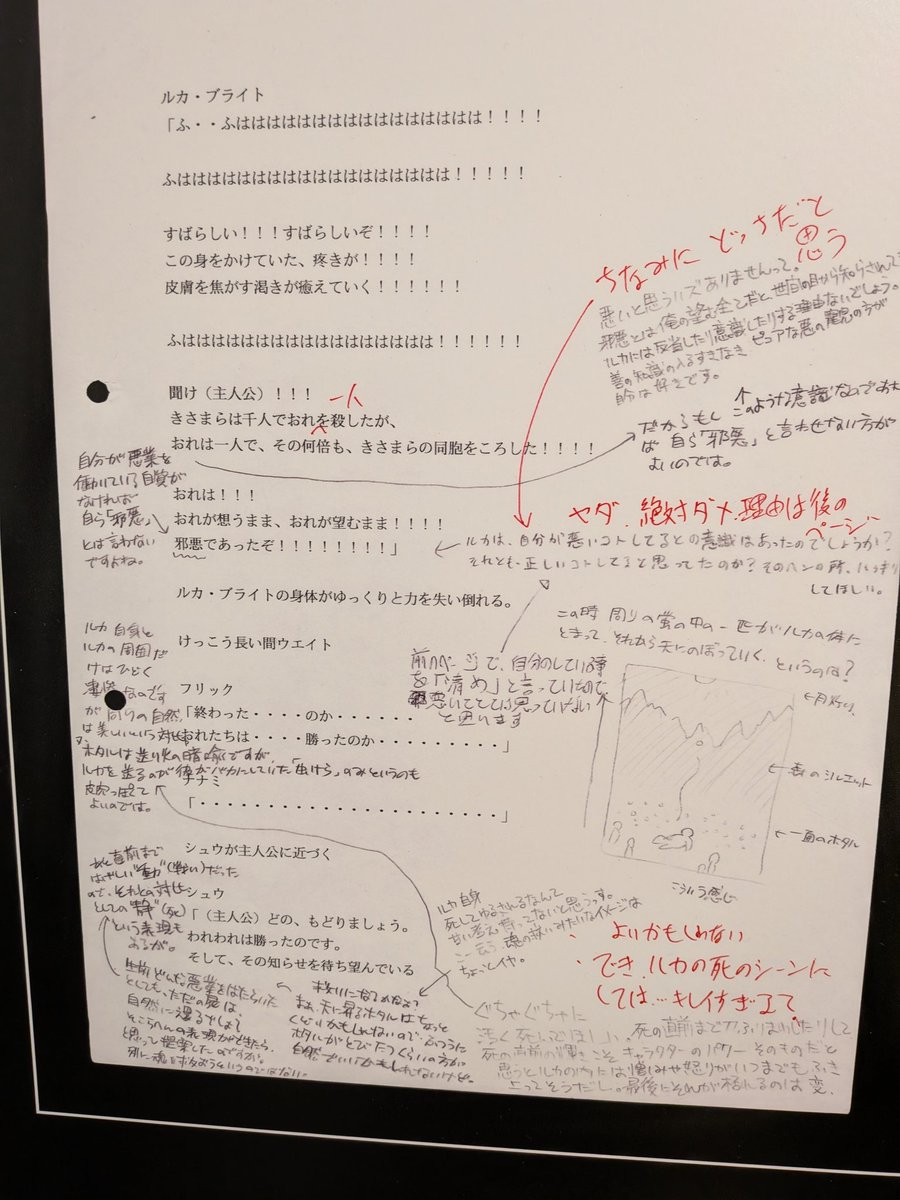 ルカ・ブライト
「ふ・・ふはははははははははははははははは！！！！
ふはははははははははははははははははは！！！！！
すばらしい！！！すばらしいぞ！！！！
この身をかけていた、疼きが！！！！
皮膚を焦がす渇きが癒えていく！！！！！！
ふはははははははははははははははははは！！！！！！
聞け（主人公）！！！
一人
きさまらは千人でおれを殺したが、
おれは一人で、その何倍も、きさまらの同胞をころした！！！！
おれは！！！
おれが想うまま、おれが望むまま！！！！
邪悪であったぞ！！！！！！！！」
ルカ・ブライトの身体がゆっくりと力を失い倒れる。
けっこう長い間ウエイト
フリック
「終わった・・・・のか・・・・・・・
おれたちは・・・・勝ったのか・・・・・・・・・・」
ナナミ
「・・・・・・・・・・・・・・・・・・・・」
シュウが主人公に近づく
シュウ
「（主人公）どの、もどりましょう。
われわれは勝ったのです。
そして、その知らせを待ち望んでいる
ちなみに どっちだと
思う
悪いと思うハズありませんって。
邪悪とは俺の望む全てだと、世間の目から知らされて
ルカには反省したり意識したりする理由ないでしょう。
善の知識の入るすきなき ピュアな悪の
自分は好きです。
このような意識ないであれ
だからもし
ば 自ら「邪悪」と言わせない方が
よいのでは。
自分が悪業を
働いている自覚が
なければ
自ら「邪悪」
とは言わない
ですよね。
ヤダ、絶対ダメ、理由は後の
ページ
ルカは、自分が悪いコトしてるとの意識はあったのでしょうか？
それとも正しいコトしてると思ってたのか？そのヘンの所、ハッキリ
してほしい。
前のページで、自分のしている事
を「清め」と言っていたので
悪いてとは思っていない
と思います
この時 周りの蛍の中の一匹がルカの体に
とまって、それから天にのぼっていく、というのは？
←月灯り
←森のシルエット
←一面のホタル
こういう感じ
ルカ自身と
ルカの周囲だ
けはひどく
凄惨なのです
が周りの自然
は美しいという対比
ホタルは送り火の暗喩ですが
ルカを送るのが彼がバカにしていた「虫けら」のみというのも
皮肉っぽくて
よいのでは。
あと直前まで
はげしい"動"（戦い）だった
ので、それとの対比
としての"静"（死）
という表現も
あるが。
ルカ自身
死してゆるされるなんて
甘い考え持ってないと思うっす。
こーゆう 魂の救いみたいなイメージは
ちょっとイヤ。
よいかもしれない
でき、ルカの死のシーンに
しては…キレイすぎるて
生前どんな悪業をはたらいた
としても、ただの屍は、
自然に還るでしょ
そこらへんの表現ができたら
と思って提案したのですが。
別に魂を救おうというのではない。
まぁ、天に昇るホタルはちょっと
くどいかもしれないので、ふつうに
ホタルがとびたつくらいの方が
自然でいいかもしれないけど。
ぐちゃぐちゃに
汚く死んでほしい。死の直前まで刀ふりまわしたりして
死の直前の輝きこそ キャラクターのパワー そのものだと
思うとルカの内には憎しみや怒りがいつまでもふき
上ってそうだし。最後にそれが枯れるのは変。